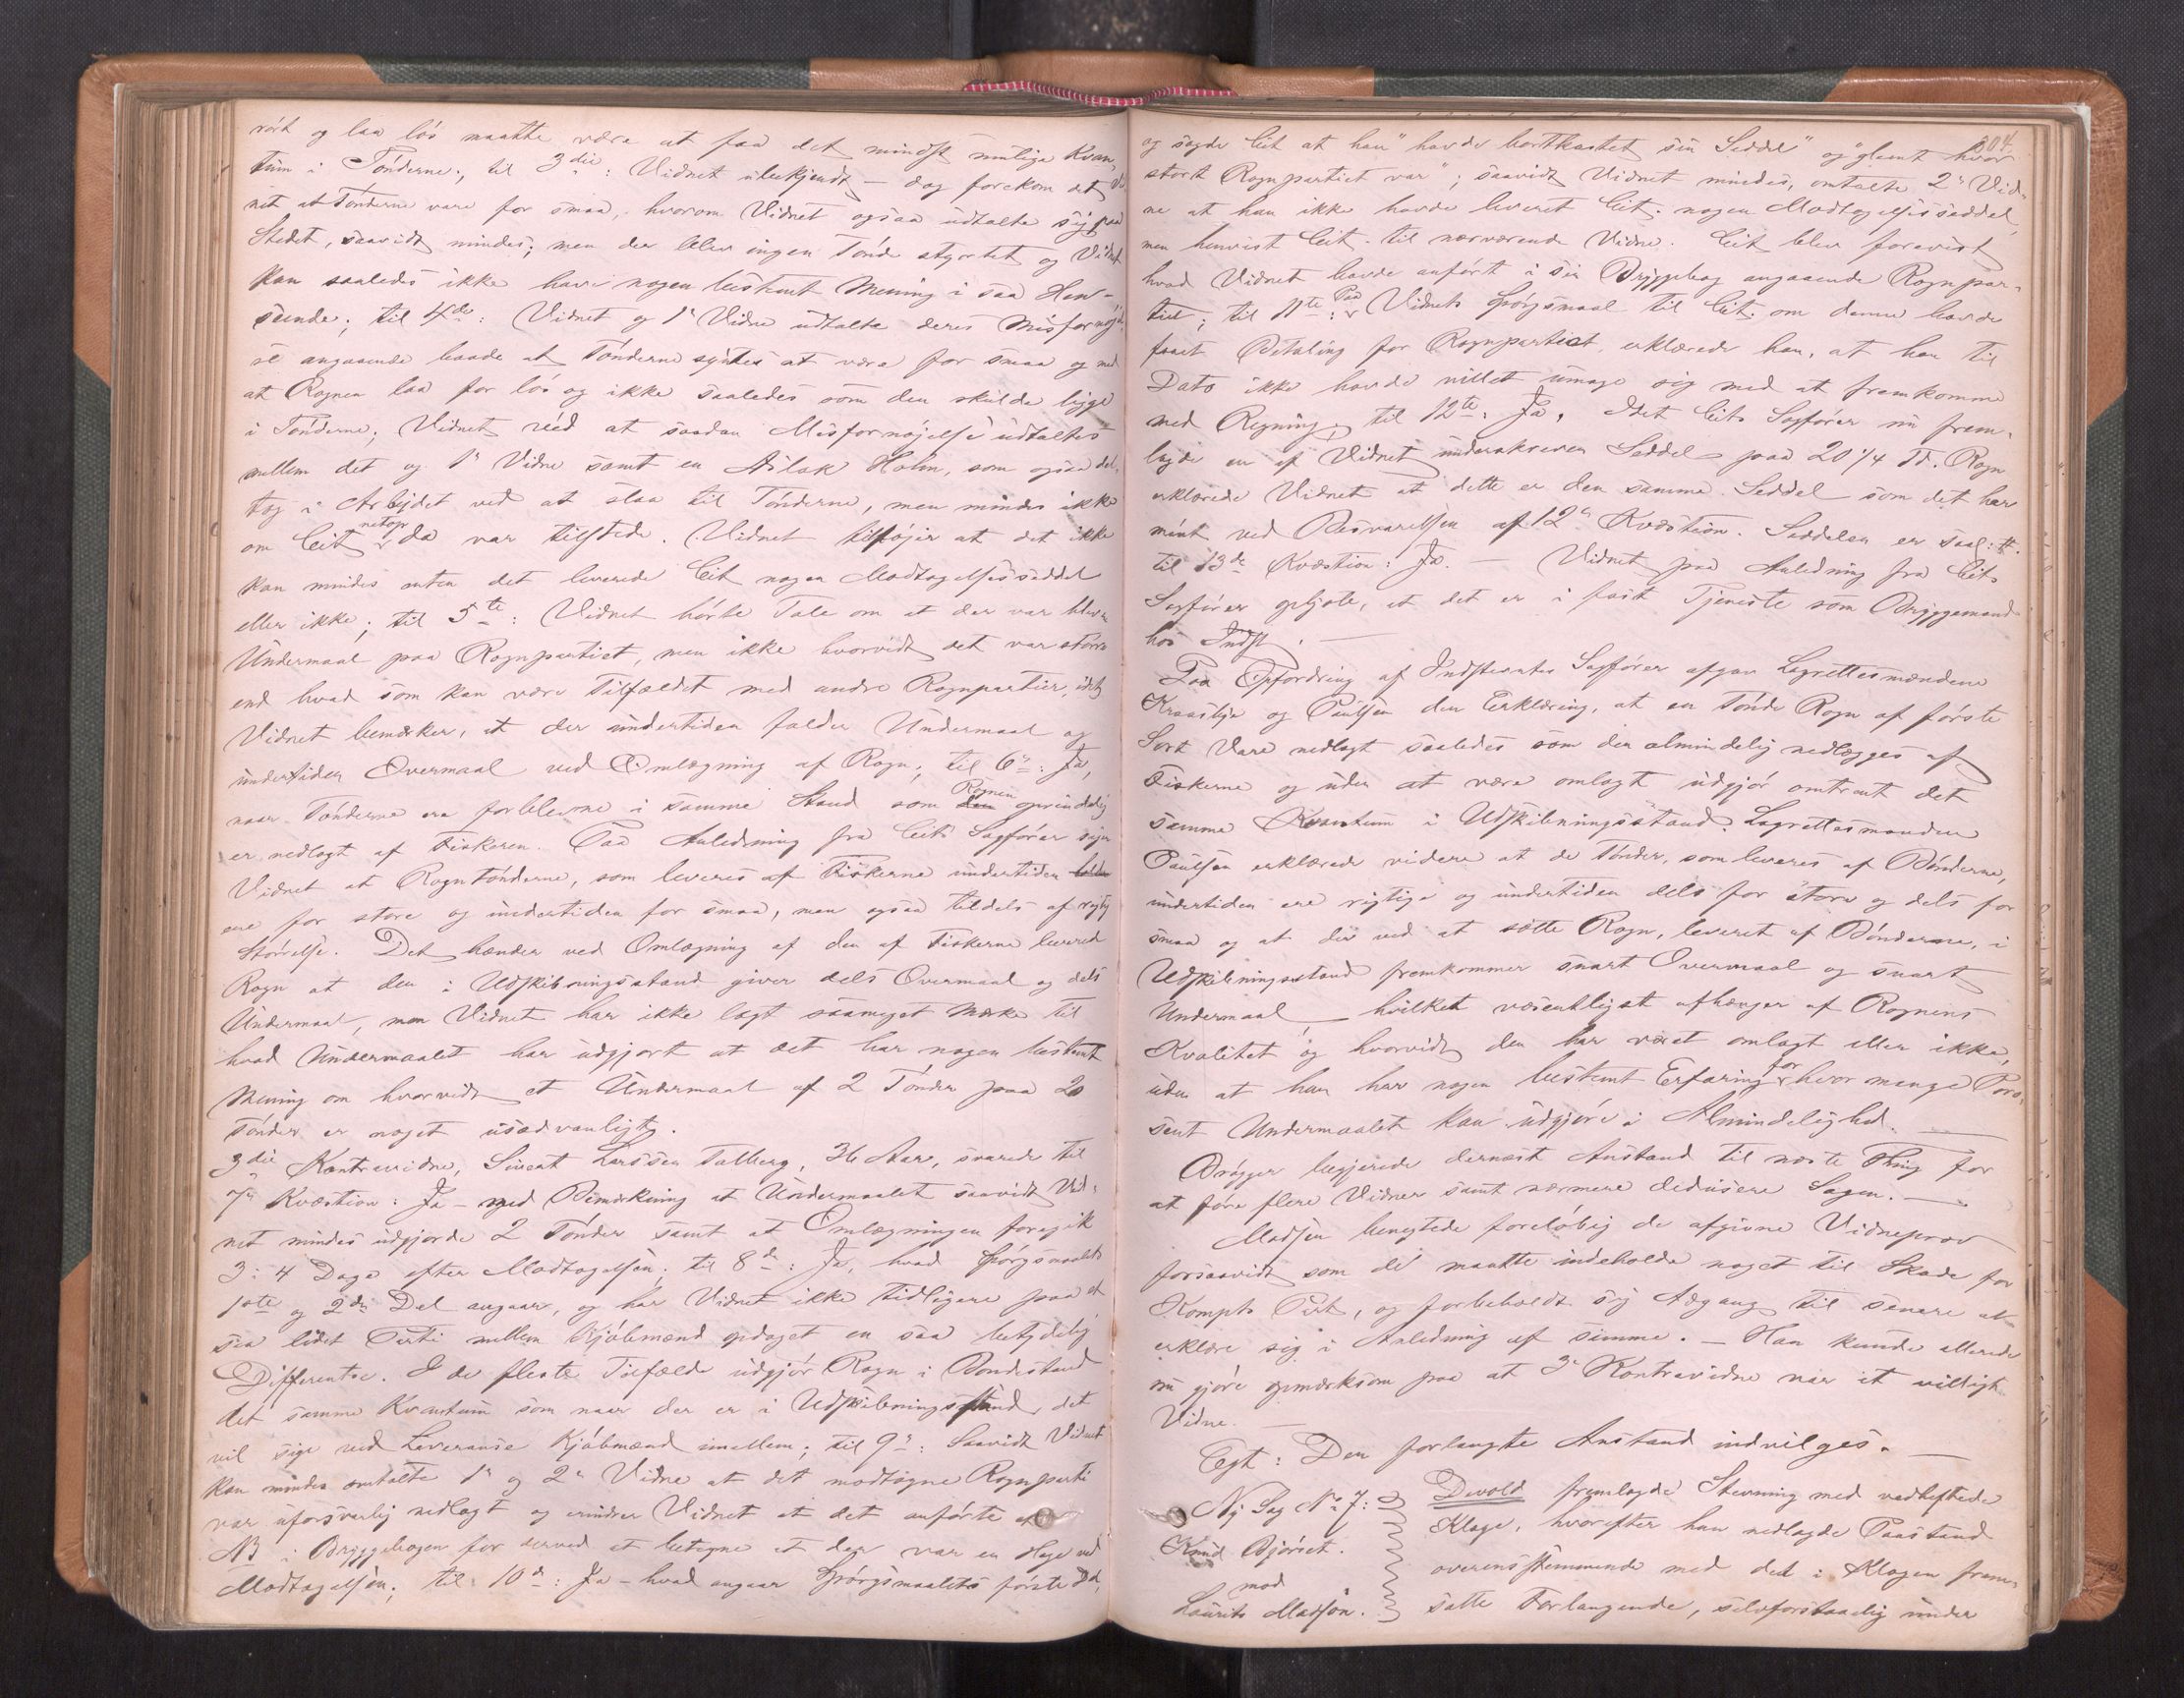 rört og laa lös maatte være at faa det mindst mulige Kvan-
tum i Tönderne; til 3die: Vidnet ubekjendt – dog forekom det Vid-
net at Tönderne vare for smaa, hvorom Vidnet ogsaa udtalte sig paa
Stedet, saavidt mindes; men der blev ingen Tönde styrtet og Vidnet
kan saaledes ikke have nogen bestemt Mening i saa Hen-
seende; til 4de: Vidnet og 1ste Vidne udtalte deres Misfornöjel-
se angaaende baade at Tönderne syntes at være for smaa og med
at Rognen laa for lös og ikke saaledes som den skulde ligge
i Tönderne; Vidnet véd at saadan Misfornöjelse udtaltes
mellem det og 1ste Vidne samt en Aslak Holm, som ogsaa del-
tog i Arbejdet ved at slaa til Tönderne, men mindes ikke
om Cit. netop da var tilstede. Vidnet tilföjer at det ikke
kan mindes enten det leverede Cit nogen Modtagelsesseddel
eller ikke; til 5te: Vidnet hörte Tale om at der var bleven
Undermaal paa Rognpartiet, men ikke hvorvidt det var större
end hvad som kan være Tilfældet med andre Rognpartier, idet
Vidnet bemærker, at der undertiden falder Undermaal og
undertiden Overmaal ved Omlægning af Rogn; til 6te: Ja,
naar Tönderne ere forblevne i samme Stand som den Rognen oprindelig
er nedlagt af Fiskeren. Paa Anledning fra Cits Sagförer siger
Vidnet at Rogntönderne, som leveres af Fiskerne undertiden
ere for store og undertiden for smaa, men ogsaa tildels af rigtig
Störrelse. Det hænder ved Omlægning af den af Fiskerne leverede
Rogn at den i Udskibningsstand giver dels Overmaal og dels
Undermaal, men Vidnet har ikke lagt saameget Mærke til
hvad Undermaalet har udgjort at det har nogen bestemt
Mening om hvorvidt et Undermaal af 2 Tönder paa 20
Tönder er noget usædvanligt.
3die Kontravidne, Sivert Larssen Talberg, 36 Aar, svarede til
7de Kvæstion: Ja – med Bemærkning at Undermaalet saavidt Vid-
net mindes udgjorde 2 Tönder samt at Omlægningen foregik
3 : 4 Dage efter Modtagelsen; til 8de: Ja, hvad Spörgsmaalets
1ste og 2den Del angaar, og har Vidnet ikke tidligere paa et
saa lidet Parti mellem Kjöbmænd opdaget en saa betydelig
Differentse. I de fleste Tilfælde udgjör Rogn i Bondestand
det samme Kvantum som naar der er i Udskibningsstand, det
vil sige ved Leveranse Kjöbmænd imellem; til 9de: Saavidt Vidnet
kan mindes omtalte 1ste og 2det Vidne at det modtagne Rognparti
var uforsvarlig nedlagt og erindrer Vidnet at det anförte et
NB i Bryggebogen for derved at betegne at der var en Hage ved
Modtagelsen; til 10de: Ja – hvad angaar Spörgsmaalets förste Del,
204.
og sagde Cit at han "havde bortkastet sin Seddel" og "glemt hvor
stort Rognpartiet var"; saavidt Vidnet mindes, omtalte 2det Vid-
ne at han ikke havde leveret Cit. nogen Modtagelsesseddel,
men henvist Cit. til nærværende Vidne. Cit blev forevist
hvad Vidnet havde anfört i sin Bryggebog angaaende Rognpar-
tiet; til 11te: Paa Vidnets Spörgsmaal til Cit. om denne havde
faaet Betaling for Rognpartiet erklærede han, at han til
Dato ikke havde villet umage sig med at fremkomme
med Regning; til 12te: Ja. Idet Cits Sagförer nu frem-
lagde en af Vidnet underskreven Seddel paa 20 1/4 Td. Rogn
erklærede Vidnet at dette er den samme Seddel som det har
ment ved Besvarelsen af 12te Kvæstion. Seddelen er saal: tt.
til 13de Kvæstion: Ja. – Vidnet paa Anledning fra Cits
Sagförer gj. at det er i fast Tjeneste som Bryggemand
hos Indst. –
Paa Opfordring af Indstevntes Sagförer afgav Lagrettesmændene
Kraasbye og Paulsen den Erklæring, at en Tönde Rogn af förste
Sort Vare nedlagt saaledes som den almindelig nedlægges af
Fiskerne og uden at være omlagt udgjör omtrent det
samme Kvantum i Udskibningsstand. Lagrettesmanden
Paulsen erklærede videre at de Tönder, som leveres af Bönderne,
undertiden ere rigtige og undertiden dels for store og dels for
smaa og at der ved at sætte Rogn, leveret af Bönderne, i
Udskibningsstand fremkommer snart Overmaal og snart
Undermaal – hvilket væsentligst afhænger af Rognens
Kvalitet og hvorvidt den har været omlagt eller ikke,
uden at han har nogen bestemt Erfaring for hvor mange Pro-
sent Undermaalet kan udgjöre i Almindelighed. –
Brögger begjærede dernæst Anstand til næste Thing for
at före flere Vidner samt nærmere dedusere Sagen. –
Madsen benegtede forelöbig de afgivne Vidneprov
forsaavidt som de maatte indeholde noget til Skade for
Kompts Part, og forbeholdt sig Adgang til senere at
erklære sig i Anledning af samme. – Han kunde allerede
nu gjöre opmærksom paa at 3die Kontravidne var et villigt
Vidne. –
Egt: Den forlangte Anstand indvilges. –
Ny Sag No 7:
Knud Björöet.
mod
Laurits Madsön.
Devold fremlagde Stevning med vedheftede
Klage, hvorefter han nedlagde Paastand
overensstemmende med det i Klagen frem-
satte Forlangende, selvforstaaelig under